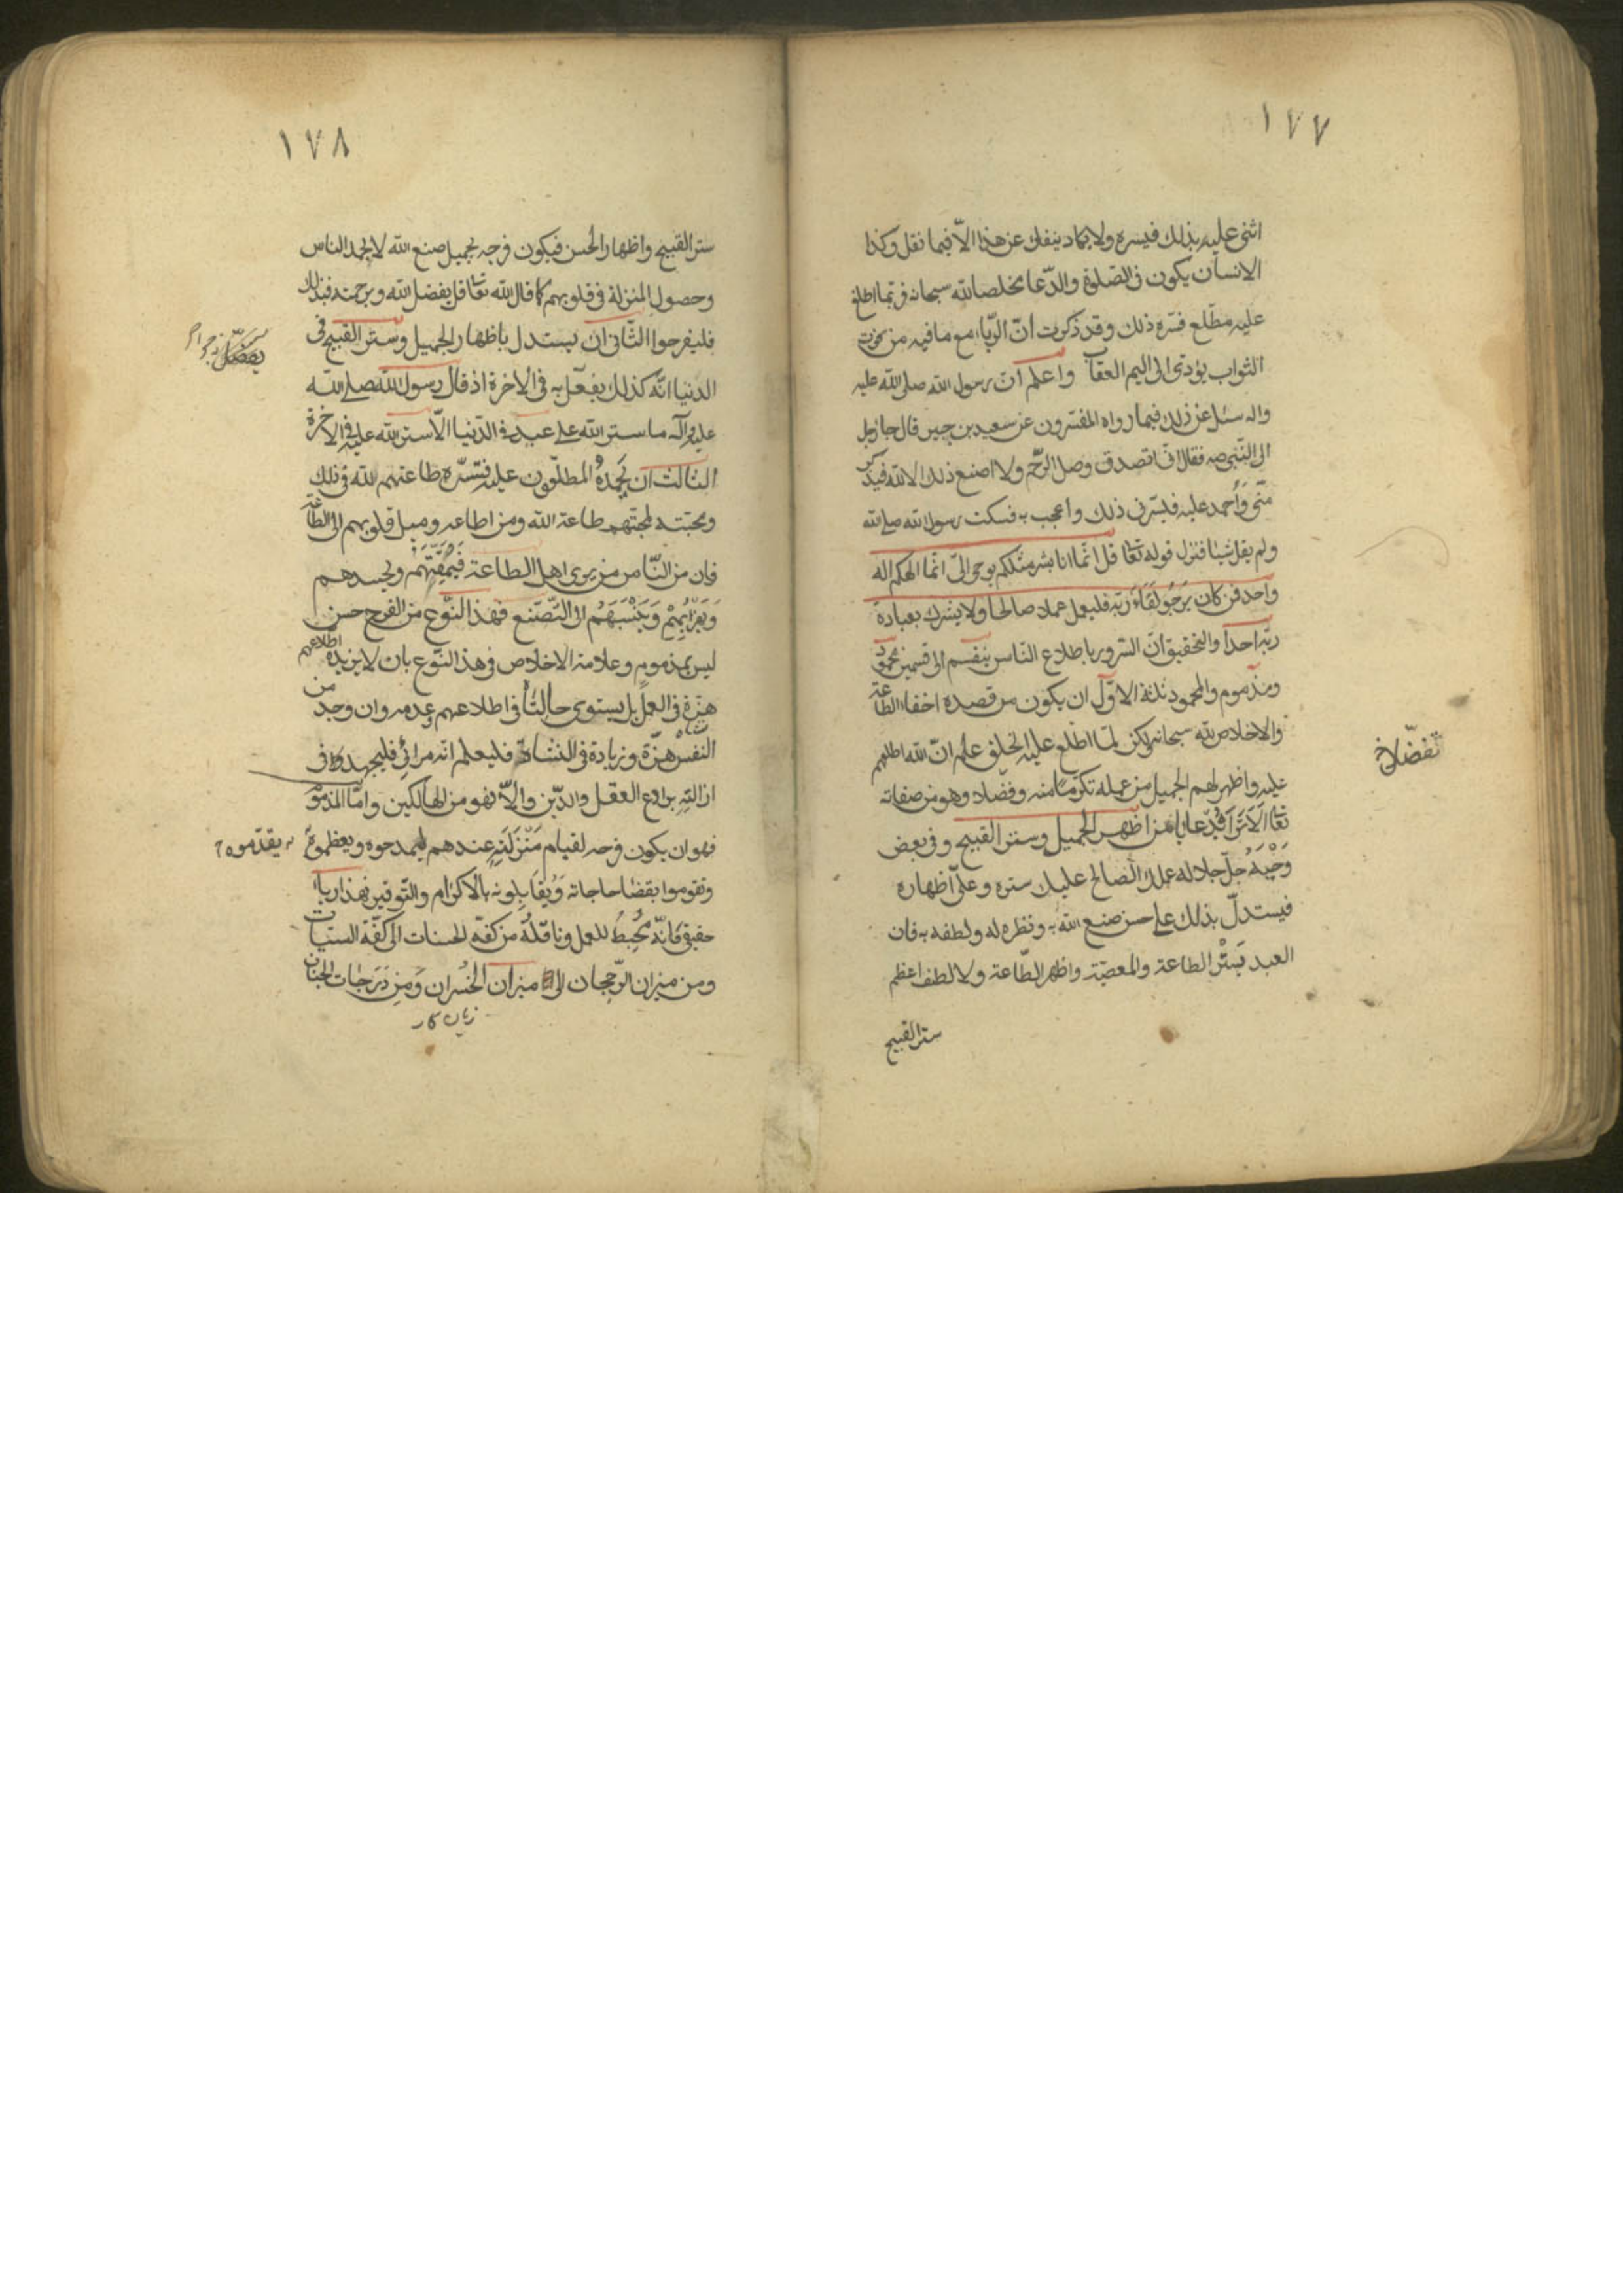 ١٧٧
اثنى عليه بذلك فيسره ولا يكاد ينفك عن هذا الّا فيما نقل وكذا
الانسان يكون فى الصّلوة والدّعا مخلصا لله سبحانه فربّما اطلع
عليه مطّلع فسّره ذلك وقد ذكرت انّ الريّاء مع ما فيه من فوت
الثواب يؤدّى الى اليم العقاب واعلم انّ رسول الله صلى الله عليه
واله سئل عن ذلك فيما رواه المفسّرون عن سعيد بن جبير قال جا رجل
الى النّبى صه فقال انّى اتصدق وصل الرّحم ولا اصنع ذلك الا لله فيذكر
منّى وَاُحمد عليه فيسّرنى ذلك واعجب به فسكت رسول الله صلى الله
ولم يقل شيئا فنزل قوله تعا قل انّما انا بشر مثلكم يوحى الىّ انّما الهكم اله
واحد فمن كان يَرجُو لقَاءَ ربّه فليعمل عملا صالحا ولا يشرك بعبادة
ربّه احداً والتحقيق انّ السّرور باطلاع النّاس ينقسم الى قسمين محمود
ومذموم والمحمود ثلثة الاوّل ان يكون من قصده اخفاء الطّاعة
والاخلاص لله سبحانه ولكن لمّا اطّلع عليه الخلق علم انّ الله اطلعهم
عليه واظهر لهم الجميل من عمله تكرّماً منه وفضلا وهو من صفاته
تعا الا ترى فى دعا يا من اظهر الجميل وستر القبيح وفى بعض
وَحْيِهِ جلّ جلاله عملك الصّالح عليك ستره وعلىّ اظهاره
فيستدلّ بذلك على حسن صنع الله به ونظره له ولطفه به فان
العبد يَستُر الطاعة والمعصيّة واظهر الطّاعة ولا لطف اعظم
ستر القبيح
تفضّلا خ
١٧٨
ستر القبيح واظهار الحسن فيكون فرحه بجميل صنع الله لا بحمد الناس
وحصول المنزلة فى قلوبهم كما قال الله تعا قل بفضل الله وبرحمته فبذلك
فليفرحوا الثّانى ان يستدل باظهار الجميل وستر القبيح فى
الدنيا انّه كذلك يفعل به فى الاخرة اذ قال رسول الله صلى الله
عليه وآله ما ستر الله على عبد فى الدّنيا الّا ستر الله عليه فى الاخرة
الثالث ان يَحمدهُ المطلّعون عليه فتسّره طاعتهم الله فى ذلك
ومحبّته لمحبّتهم طاعة الله ومن اطاعه وميل قلوبهم الى الطّاعة
فان من النّاس من يرى اهل الطاعة فَيَمقُتُهُم ويحسدهم
وَيَنْسَبَهُم الى التّصنّع فهذا النّوع من الفرح حسن
ليس بمذموم وعلامة الاخلاص فى هذا النّوع بان لا يزيده اطّلاعهم
هزّة فى العمل بل يستوى حالتا فى اطلاعهم وعدمه وان وجد من
النفس هزّة وزيادة فى النشاط فليعلم انّه مرائى فليجهد فى
ازالته برادع العقل والدّين والّا فهو من الهالكين وامّا المذموم
فهو ان يكون فرحه لقيام مَنْزَلَتِهِ عندهم ليمدحوه ويعظموه
وتقوموا بقضا حاجاته وَيُقابِلونه بالاكرام والتّوقير فهذا رياء
حقيقى فانّه يُحْبِطُ للعمل وناقلةُ من كفّة الحسنات الى كفّة السيّئات
ومن ميزان الرّجحان الى ميزان الخُسران وَمِن دَرَجات الجنان
زيان كار
يقدّموه